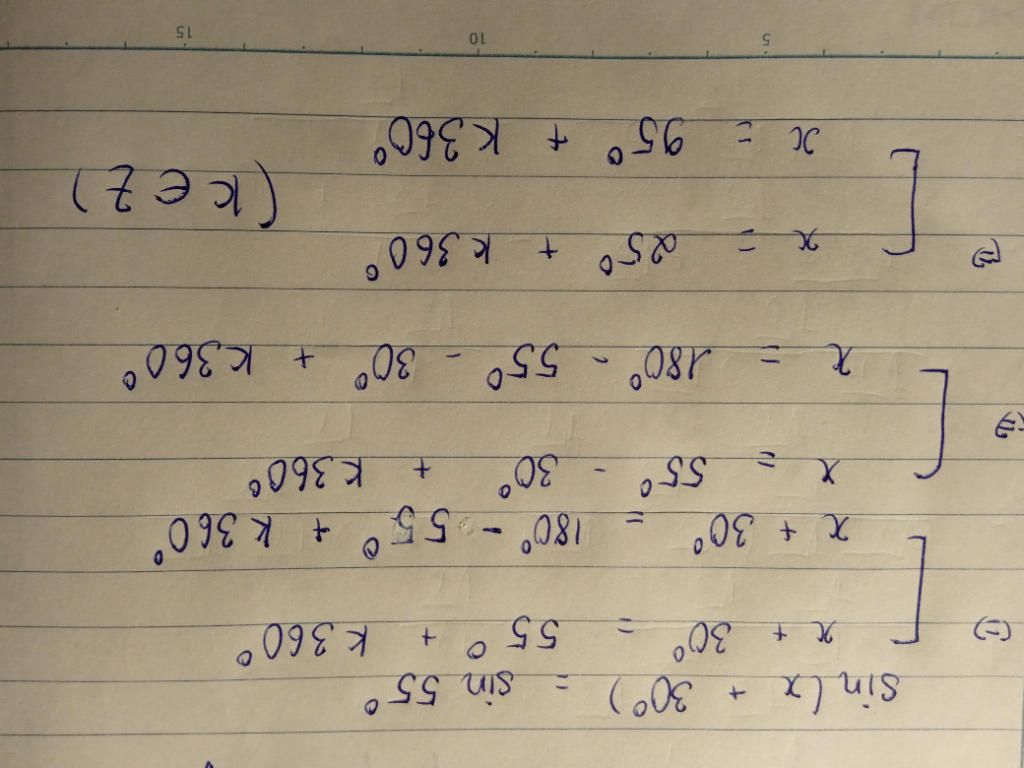 sin(x + 30°) = sin 55°
(=) x + 30° = 55° + k360°
x + 30° = 180° - 55° + k360°
(=) x = 55° - 30° + k360°
x = 180° - 55° - 30° + k360°
(=) x = 25° + k360°
(k ∈ Z)
x = 95° + k360°
5 10 15